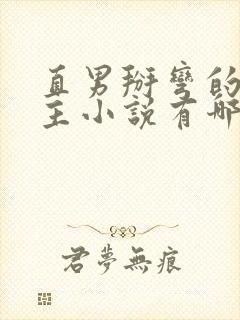 直男掰彎的
主小說有哪
君夢無痕